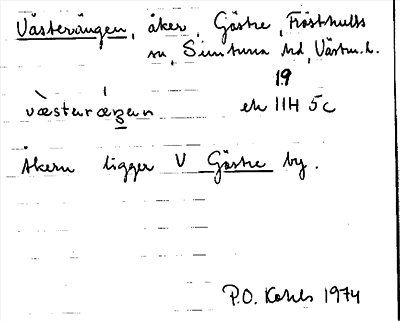 Västerängen, åker, Göstre, Frösthults
sn, Simtuna hd, Västm. l.
19
væsteræŋen ek 11H 5c
Åkern ligger V Göstre by.
P.O. Kohls 1974